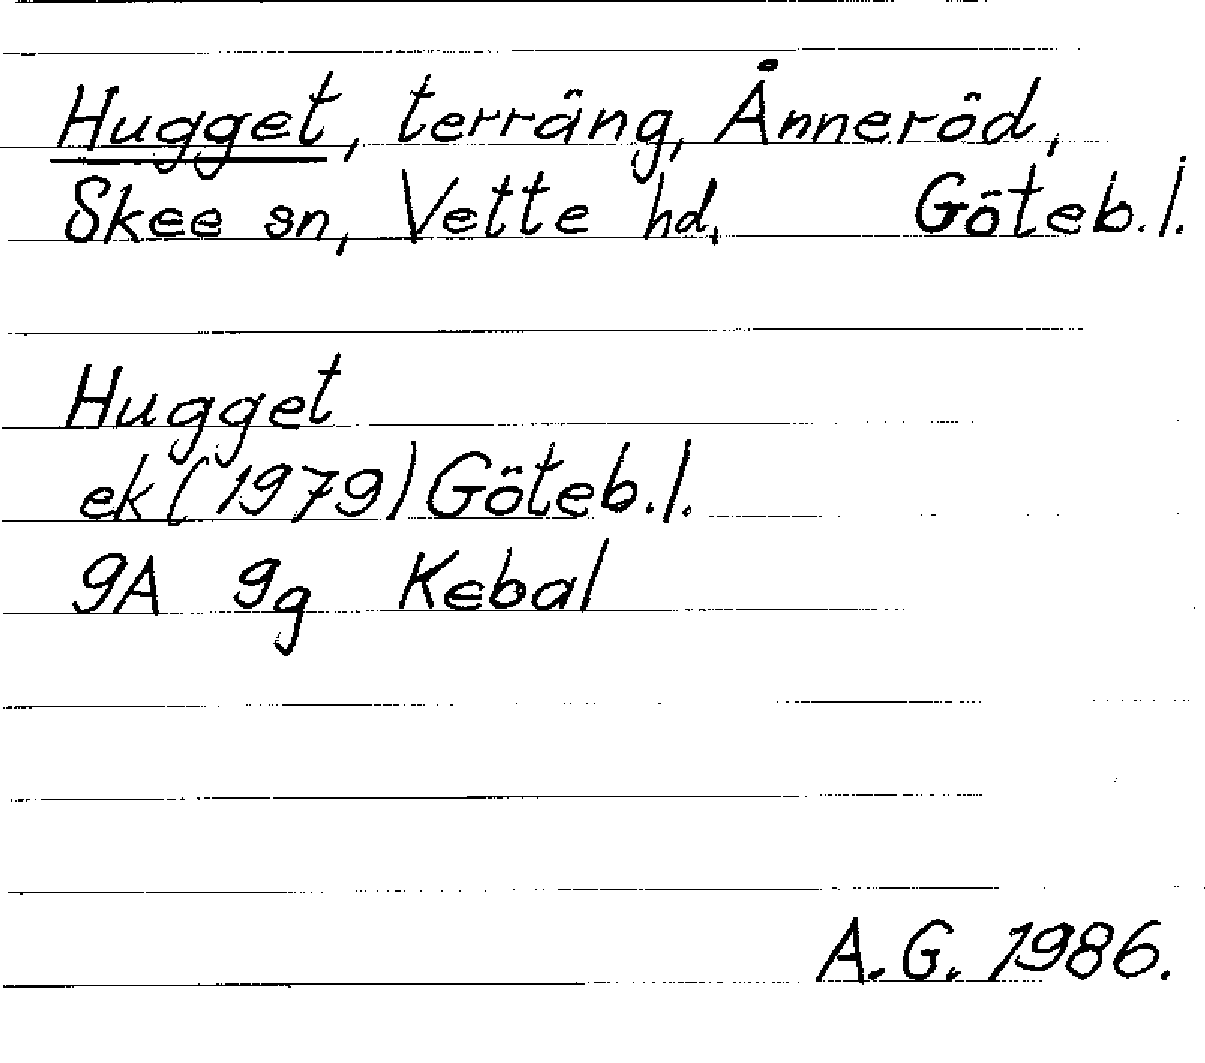 Hugget, terräng, Ånneröd,
Skee sn, Vette hd, Göteb.l.
Hugget
ek (1979) Göteb.l.
9A 9g Kebal
A.G. 1986.